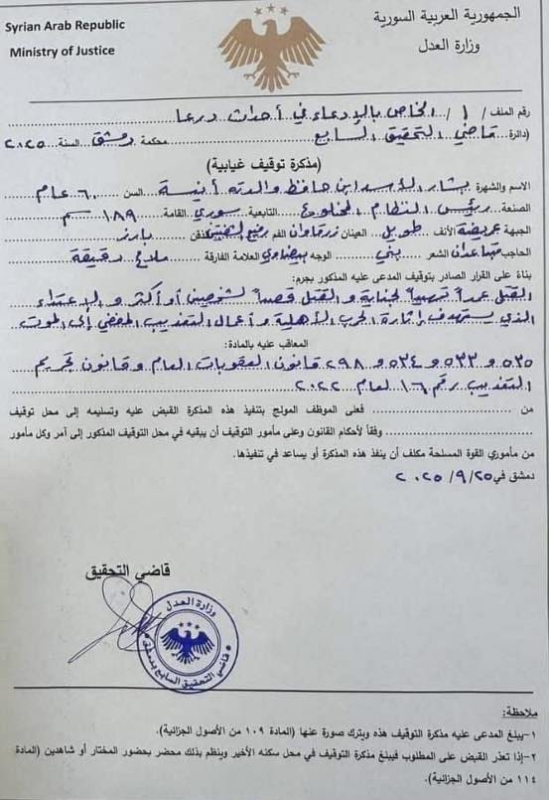 Syrian Arab Republic
Ministry of Justice
الجمهورية العربية السورية
وزارة العدل
رقم الملف / ١ / الخاص بالإدعاء في أحداث درعا
(دائرة قاضي التحقيق السابع محكمة دمشق السنة ٢٠٢٥
(مذكرة توقيف غيابية)
الاسم والشهرة بشار الأسد ابن حافظ والدته أنيسة السن ٦٠ عام
الصنعة رئيس النظام المخلوع التابعية سوري القامة ١٨٩ سم
الجبهة عريضة الأنف طويل العينان زرقاوان الفم رفيع الشفتين الذقن بارز
الحاجب متباعدان الشعر بني الوجه بيضاوي العلامة الفارقة ملامح دقيقة
بناءً على القرار الصادر بتوقيف المدعى عليه المذكور بجرم:
القتل عمداً تمهيداً لجناية والقتل قصداً لشخصين أو أكثر والاعتداء
الذي يستهدف إثارة الحرب الأهلية وأعمال التعذيب المفضي إلى الموت
المعاقب عليه بالمادة:
٥٣٥ و ٥٣٣ و ٥٣٤ و ٢٩٨ قانون العقوبات العام وقانون تجريم
التعذيب رقم ١٦ لعام ٢٠٢٢
من فعلى الموظف المولج بتنفيذ هذه المذكرة القبض عليه وتسليمه إلى محل توقيف
وفقاً لأحكام القانون وعلى مأمور التوقيف أن يبقيه في محل التوقيف المذكور إلى آمر وكل مأمور
من مأموري القوة المسلحة مكلف أن ينفذ هذه المذكرة أو يساعد في تنفيذها.
دمشق في ٢٥/ ٩/ ٢٠٢٥
قاضي التحقيق
وزارة العدل
قاضي التحقيق السابع بدمشق
ملاحظة:
١-يبلغ المدعى عليه مذكرة التوقيف هذه ويترك صورة عنها (المادة ١٠٩ من الأصول الجزائية).
٢-إذا تعذر القبض على المطلوب فيبلغ مذكرة التوقيف في محل سكنه الأخير وينظم بذلك محضر بحضور المختار أو شاهدين (المادة
١١٤ من الأصول الجزائية).